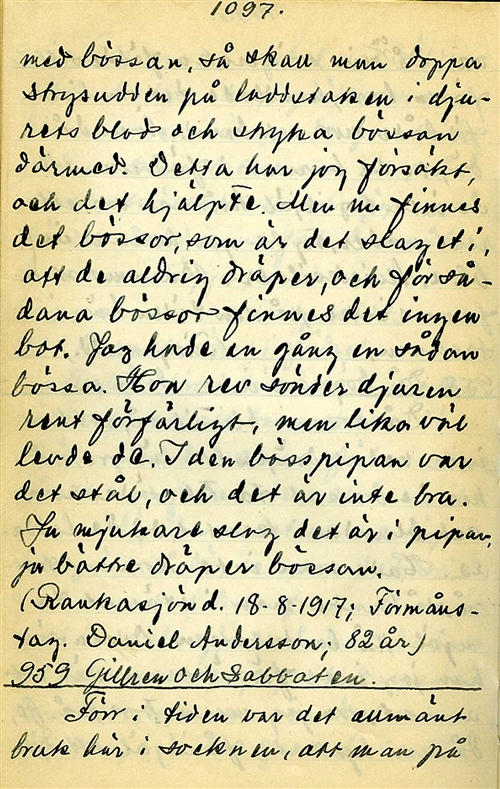 1097.
med bössan, så skall man doppa
strysudden på laddstaken i dju-
rets blod och stryka bössan
därmed. Detta har jag försökt,
och det hjälpte. Men nu finnes
det bössor, som är det slaget i,
att de aldrig dräper, och för så-
dana bössor finnes det ingen
bot. Jag hade en gång en sådan
bössa. Hon rev sönder djuren
rent förfärligt, men lika väl
levde de. I den bösspipan var
det stål, och det är inte bra.
Ju mjukare slag det är i pipan,
ju bättre dräper bössan.
(Rankasjön d. 18-8-1917; Förmåns-
tag. Daniel Andersson; 82 år)
959 Gillren och Sabbaten.
Förr i tiden var det allmänt
bruk här i socknen, att man på